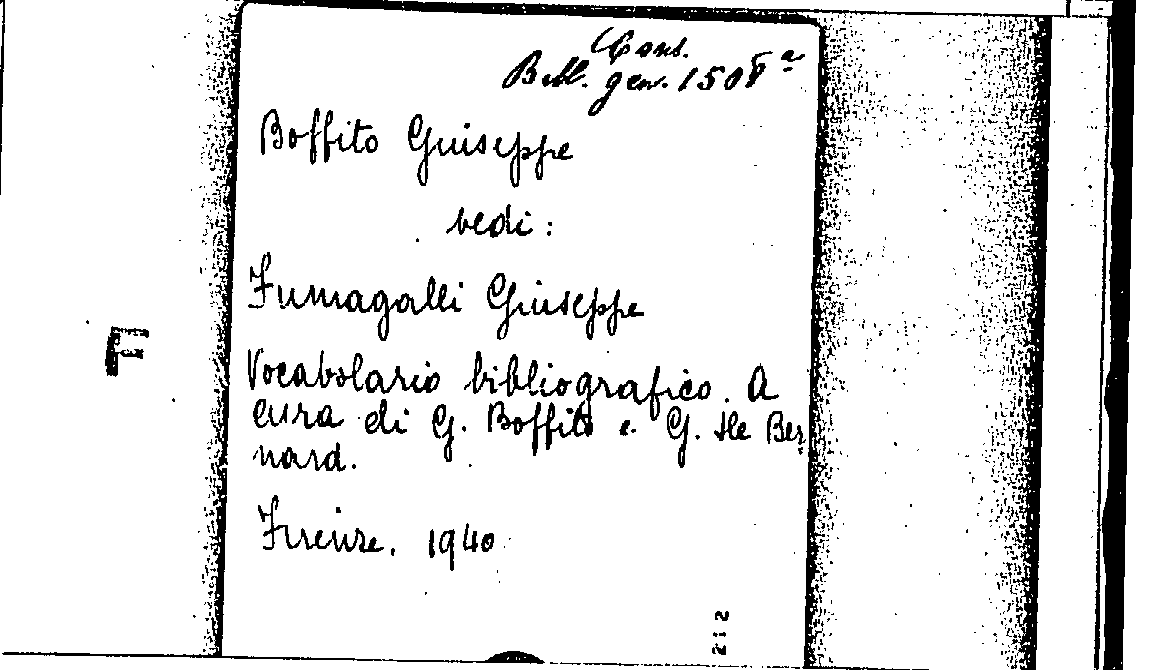 Cons.
Bibl. gen. 150 8ª
Boffito Giuseppe
vedi:
Fumagalli Giuseppe
F
Vocabolario bibliografico. A
cura di G. Boffito e G. De Ber
nard.
Firenze. 1940
212